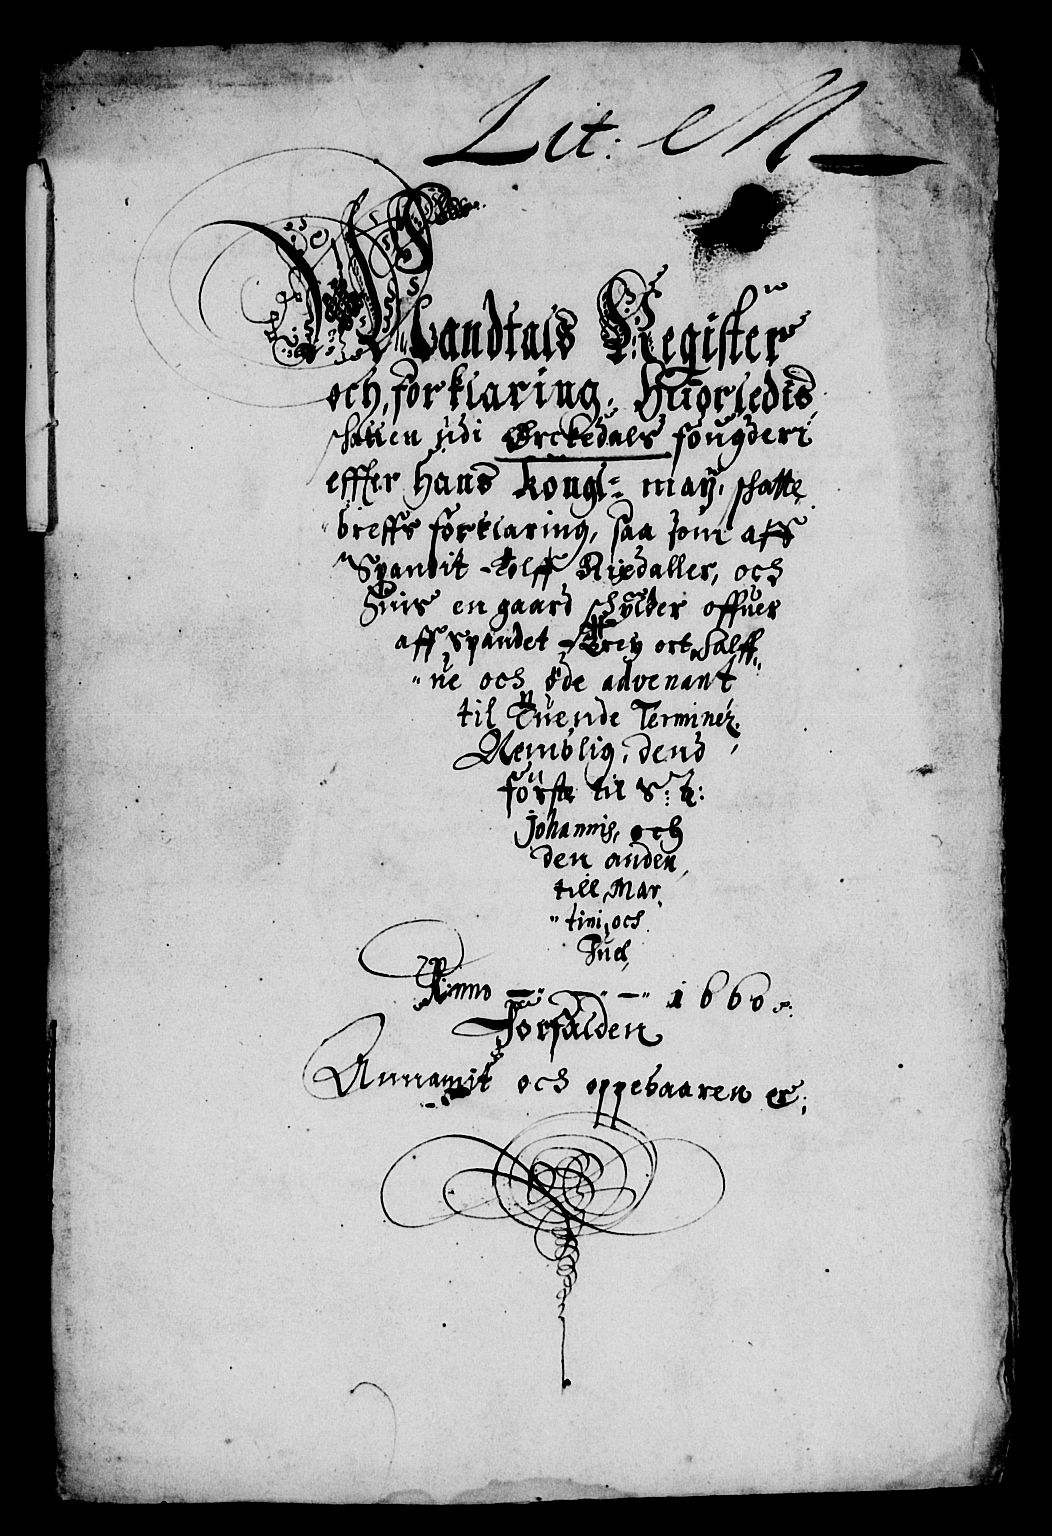 Lit: M
Mandtals Register
och forklaring, Huorledis
schatten udi Ørckedals fougderi
effter Hans Kongl: may: schatte
breffs forklaring, saa som aff
Spandit Tolff Rixdaller, och
Huis en gaard schylder offuer
aff Spandet Trey ort, Halff
"ue och øde advenant
til Tuende Terminer,
Nemblig, dend
förste til S:
Johannis, och
den anden
till Mar
"tini, och
Juel,
Anno 1660.
Forfalden
Annamit och oppebaaren er;